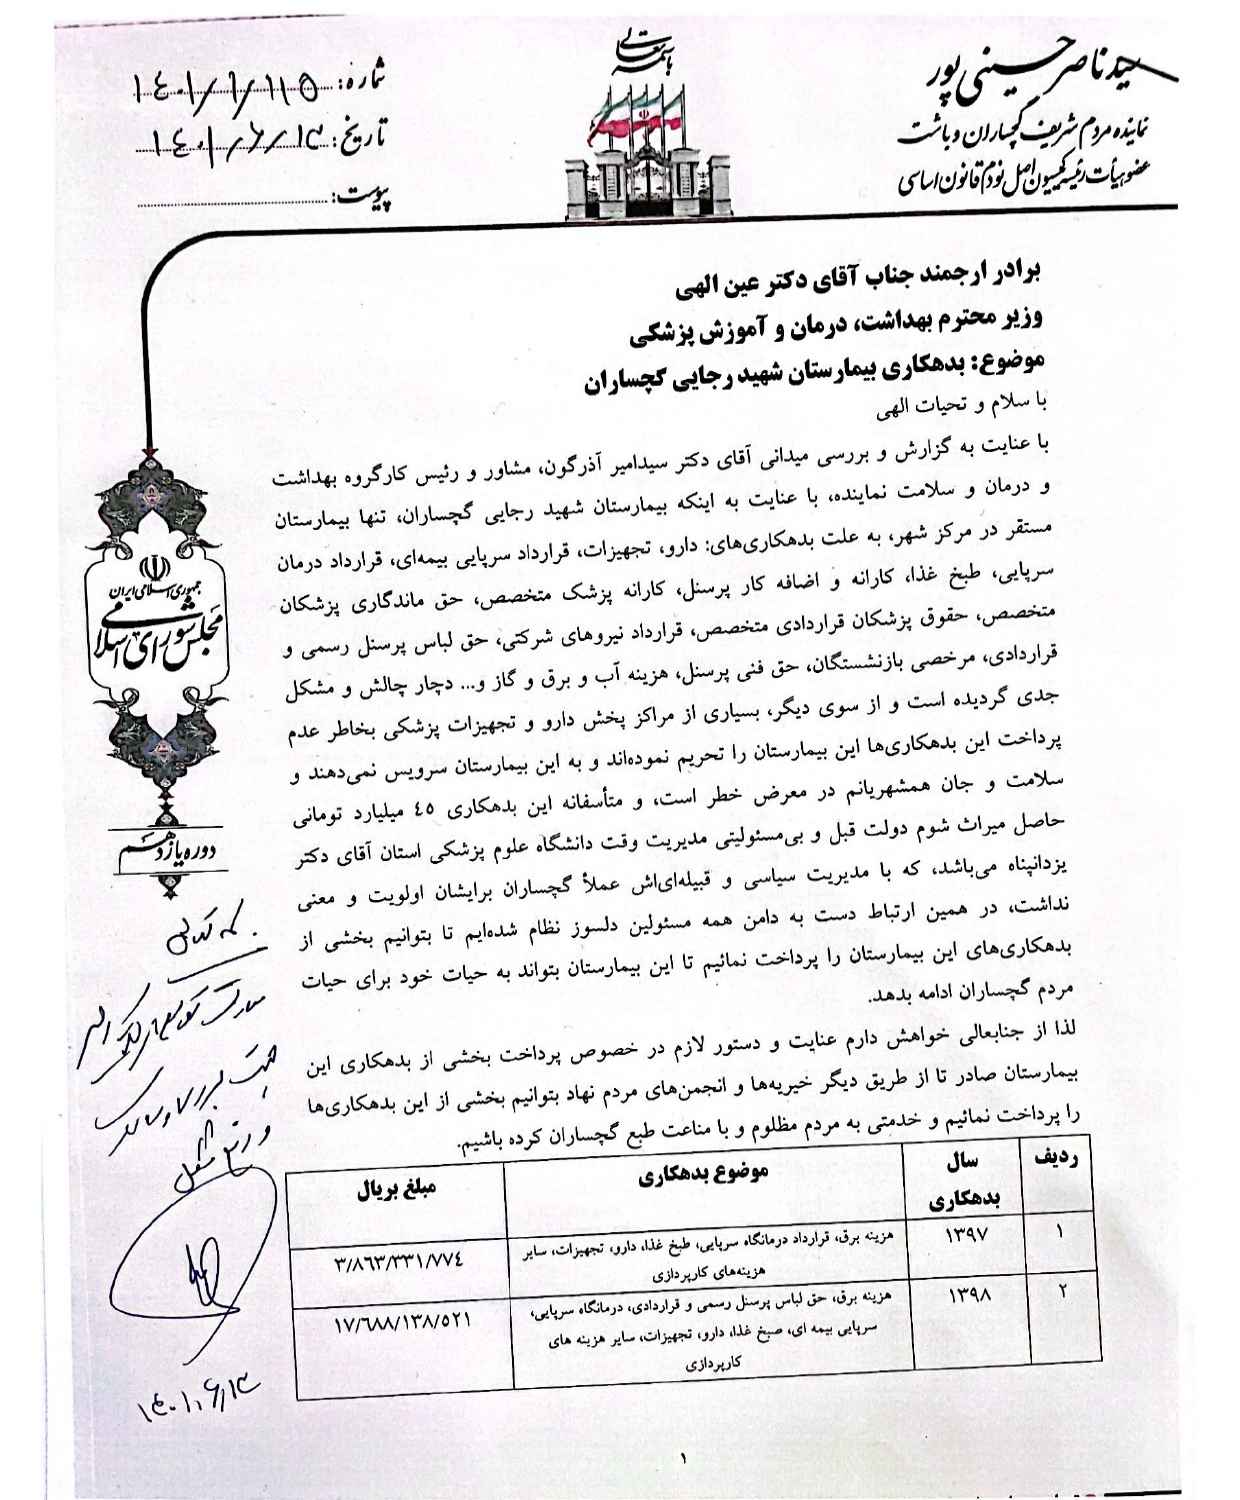 باسمه تعالی
سید ناصر حسینی پور
نماینده مردم شریف گچساران و باشت
عضو هیأت رئیسه کمیسیون اصل نودم قانون اساسی
شماره: ۱۴۰۱/۶/۱۱۵
تاریخ: ۱۴۰۱/۶/۱۳
پیوست:
برادر ارجمند جناب آقای دکتر عین الهی
وزیر محترم بهداشت، درمان و آموزش پزشکی
موضوع: بدهکاری بیمارستان شهید رجایی گچساران
با سلام و تحیات الهی
با عنایت به گزارش و بررسی میدانی آقای دکتر سیدامیر آذرگون، مشاور و رئیس کارگروه بهداشت
و درمان و سلامت نماینده، با عنایت به اینکه بیمارستان شهید رجایی گچساران، تنها بیمارستان
مستقر در مرکز شهر، به علت بدهکاری‌های: دارو، تجهیزات، قرارداد سرپایی بیمه‌ای، قرارداد درمان
سرپایی، طبخ غذا، کارانه و اضافه کار پرسنل، کارانه پزشک متخصص، حق ماندگاری پزشکان
متخصص، حقوق پزشکان قراردادی متخصص، قرارداد نیروهای شرکتی، حق لباس پرسنل رسمی و
قراردادی، مرخصی بازنشستگان، حق فنی پرسنل، هزینه آب و برق و گاز و... دچار چالش و مشکل
جدی گردیده است و از سوی دیگر، بسیاری از مراکز پخش دارو و تجهیزات پزشکی بخاطر عدم
پرداخت این بدهکاری‌ها این بیمارستان را تحریم نموده‌اند و به این بیمارستان سرویس نمی‌دهند و
سلامت و جان همشهریانم در معرض خطر است، و متأسفانه این بدهکاری ٤٥ میلیارد تومانی
حاصل میراث شوم دولت قبل و بی‌مسئولیتی مدیریت وقت دانشگاه علوم پزشکی استان آقای دکتر
یزدانپناه می‌باشد، که با مدیریت سیاسی و قبیله‌ای‌اش عملاً گچساران برایشان اولویت و معنی
نداشت، در همین ارتباط دست به دامن همه مسئولین دلسوز نظام شده‌ایم تا بتوانیم بخشی از
بدهکاری‌های این بیمارستان را پرداخت نمائیم تا این بیمارستان بتواند به حیات خود برای حیات
مردم گچساران ادامه بدهد.
لذا از جنابعالی خواهش دارم عنایت و دستور لازم در خصوص پرداخت بخشی از بدهکاری این
بیمارستان صادر تا از طریق دیگر خیریه‌ها و انجمن‌های مردم نهاد بتوانیم بخشی از این بدهکاری‌ها
را پرداخت نمائیم و خدمتی به مردم مظلوم و با مناعت طبع گچساران کرده باشیم.
ردیف سال بدهکاری موضوع بدهکاری مبلغ بریال
۱ ۱۳۹۷ هزینه برق، قرارداد درمانگاه سرپایی، طبخ غذا، دارو، تجهیزات، سایر ۳/۸٦۳/۳۳۱/۷۷٤
هزینه‌های کارپردازی
۲ ۱۳۹۸ هزینه برق، حق لباس پرسنل رسمی و قراردادی، درمانگاه سرپایی، ۱۷/٦۸۸/۱۳۸/٥۲۱
سرپایی بیمه ای، صبخ غذا، دارو، تجهیزات، سایر هزینه های
کارپردازی
جمهوری اسلامی ایران
مجلس شورای اسلامی
دوره یازدهم
۱۴۰۱،۶،۱۳
۱